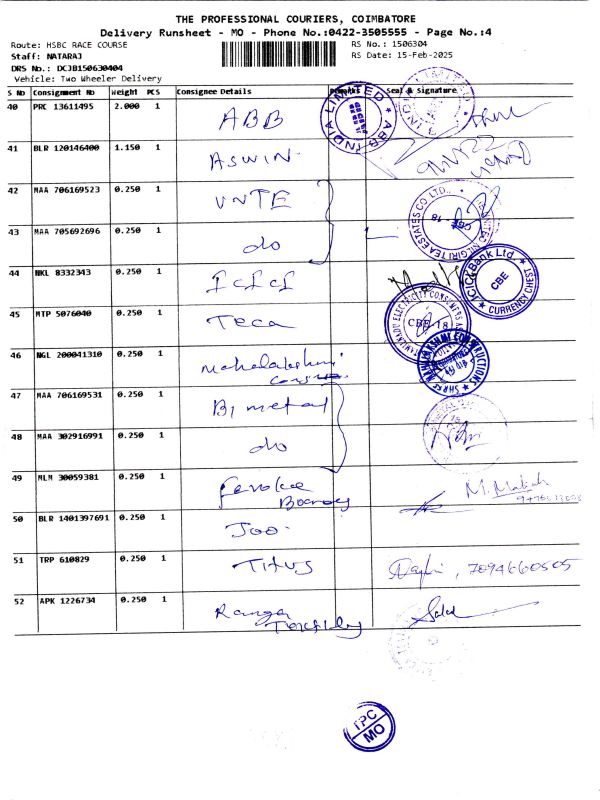 THE PROFESSIONAL COURIERS, COIMBATORE
Delivery Runsheet - MO - Phone No.:0422-3505555 - Page No.:4
Route: HSBC RACE COURSE RS No.: 1506304
Staff: NATARAJ RS Date: 15-Feb-2025
DRS No.: DCJB150630404
Vehicle: Two Wheeler Delivery
S No Consignment No Weight PCS Consignee Details Remarks Seal & Signature
40 PRC 13611495 2.000 1 ABB
ABB INDIA LIMITED
41 BLR 120146400 1.150 1 ASWIN
42 MAA 706169523 0.250 1 UNTE
NILGIRI TEA ESTATES CO LTD.,
CBE 18
43 MAA 705692696 0.250 1 do
44 NKL 8332343 0.250 1 ICICI
ICICI Bank Ltd
CBE
CURRENCY CHEST
45 MTP 5076040 0.250 1 Teca
ELECTRICITY CONSUMERS
CBE-18
46 NGL 200041310 0.250 1 Mahalakshmi
SHREE MAHALAKSHMI CONSTRUCTIONS
47 MAA 706169531 0.250 1 Bimetal
48 MAA 302916991 0.250 1 do
49 MLM 30059381 0.250 1
50 BLR 1401397691 0.250 1 Joo
51 TRP 610829 0.250 1 Titus , 7094660505
52 APK 1226734 0.250 1 Ranga
TPC
MO